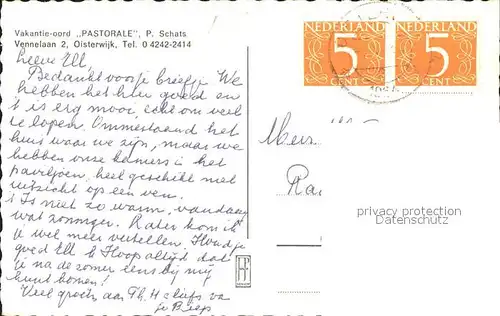 Vakantie-oord „PASTORALE", P. Schats
Vennelaan 2, Oisterwijk, Tel. 0 4242-2414
Lieve Ell,
Bedankt voor je briefje. We
hebben het hier goed en
't is erg mooi, echt om veel
te lopen. Ommestaand het
huis waar we zijn, maar we
hebben onze kamers in het
paviljoen, heel geschikt met
uitzicht op een ven.
't Is niet zo warm, vandaag
wat zonniger. Later kom ik
je wel meer vertellen. Houd je
goed Ell & Hoop altijd dat
je na de zomer eens bij mij
kunt komen!
Veel groeten aan Th. H liefs va
je
NEDERLAND
5
CENT
NEDERLAND
5
CENT
Mej.
Ra
privacy protection
Datenschutz